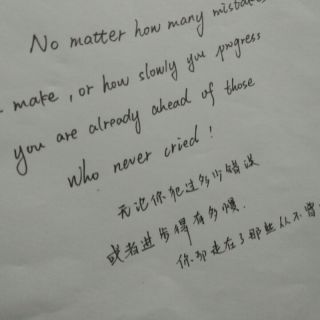 No matter how many mistakes
make, or how slowly you progress
you are already ahead of those
who never cried!
无论你犯过多少错误
或者进步得有多慢.
你都走在了那些从不曾